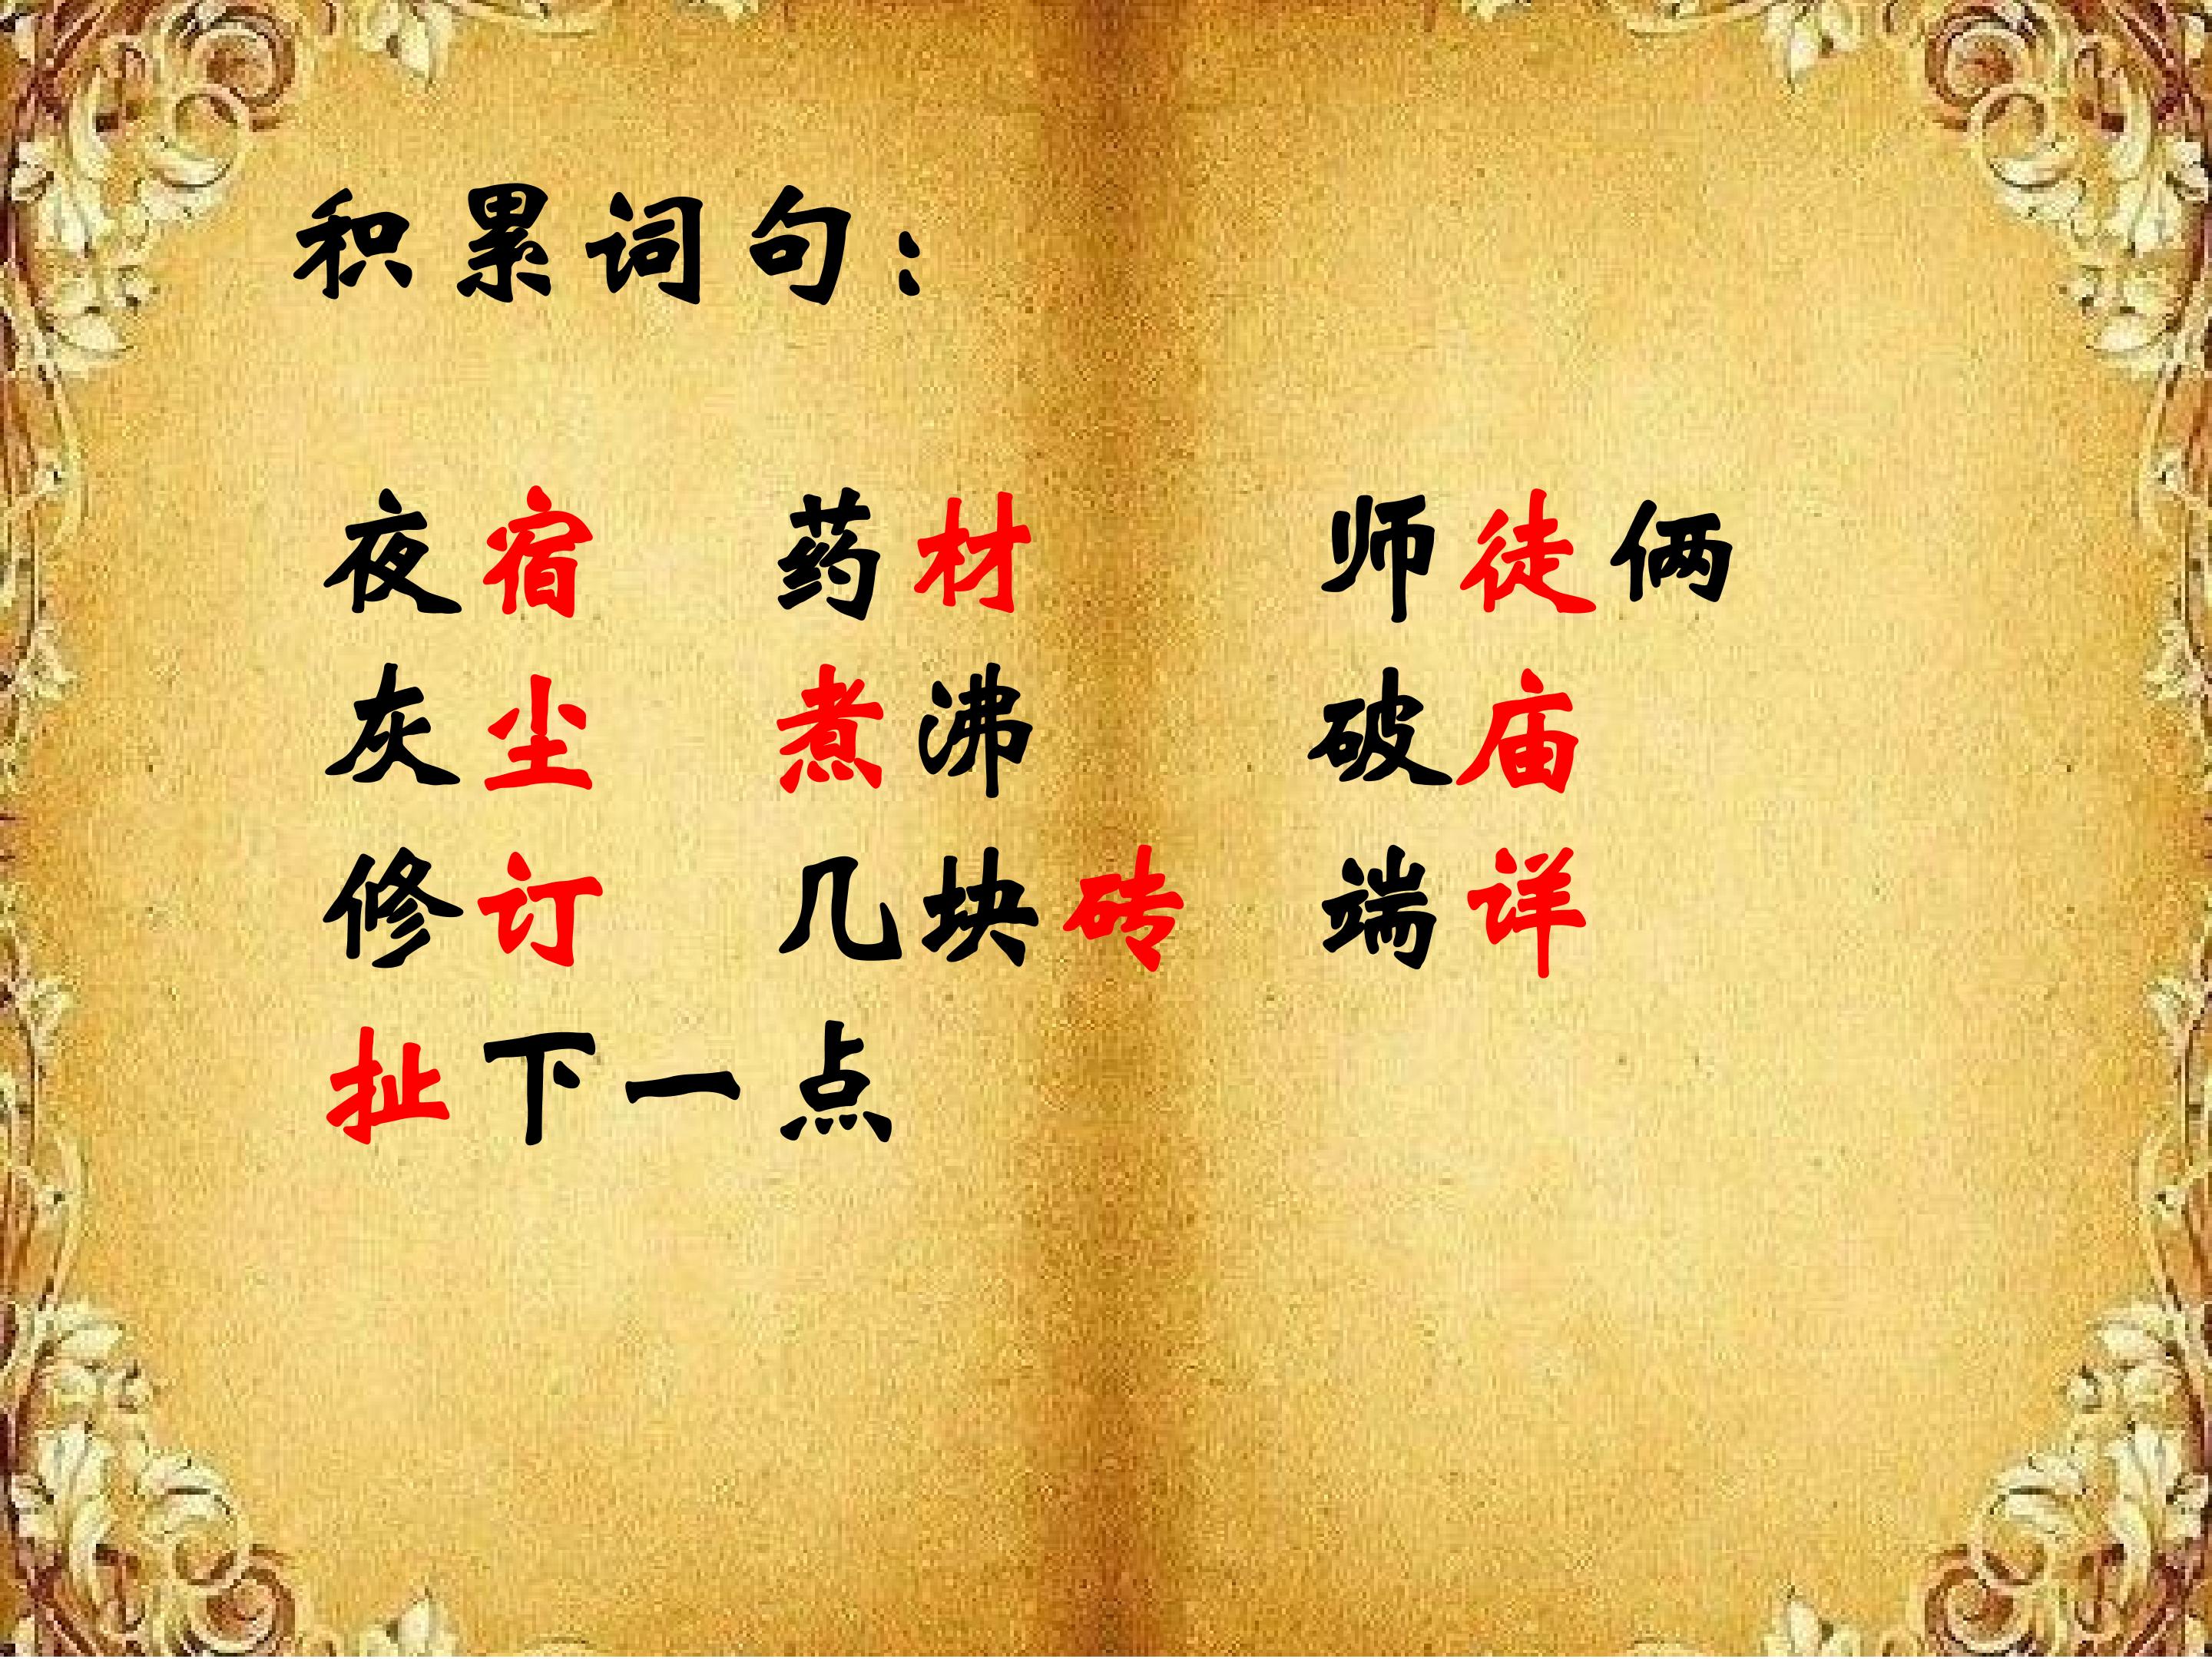 积累词句：
夜宿 药材 师徒俩
灰尘 煮沸 破庙
修订 几块砖 端详
扯下一点